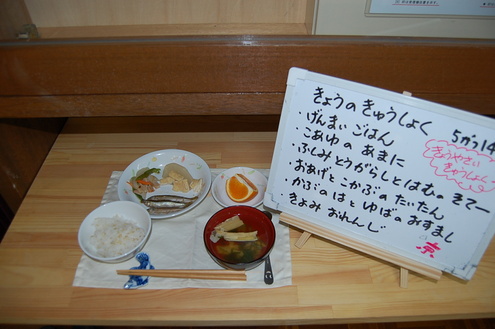 きょうの きゅうしょく 5がつ14
・げんまい ごはん
・こあゆの あまに
・ふしみとうがらしとはむの きてー
・おあげとこかぶの たいたん
・かぶの はと ゆばの おすまし
・きよみ おれんじ
きょうやさい
きゅうしょく
京